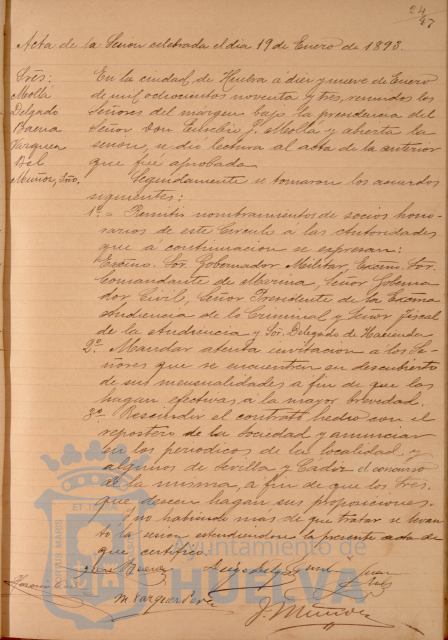 24/47
Acta de la Sesion celebrada el dia 19 de Enero de 1893.
Sres:
Mollá
Delgado
Baena
Vazquez
Bel
Muñoz, Srio.
En la ciudad de Huelva á diez y nueve de Enero
de mil ochocientos noventa y tres, reunidos los
Señores del márgen bajo la presidencia del
Señor Don Eusebio J. Mollá y abierta la
sesion, se dió lectura al acta de la anterior
que fué aprobada.
Seguidamente se tomaron los acuerdos
siguientes:
1º = Remitir nombramientos de socios hono-
rarios de este Circulo á las Autoridades
que á continuacion se expresan:
Excmo. Sor. Gobernador Militar, Excmo. Sor.
Comandante de Marina, Señor Goberna-
dor Civil, Señor Presidente de la Excma
Audiencia de lo Criminal y Señor Fiscal
de la Audiencia y Sor. Delegado de Hacienda
2º Mandar atenta invitacion a los Se-
ñores que se encuentren en descubierto
de sus mensualidades á fin de que las
hagan efectivas á la mayor brevedad.
3º Rescindir el contrato hecho con el
repostero de la Sociedad y anunciar
en los periodicos de la localidad y
algunos de Sevilla y Cádiz el concurso
de la misma, á fin de que los Sres.
que deseen hagan sus proposiciones.
Y no habiendo más de que tratar se levan-
tó la sesion extendiendose la presente acta de
que certifico.
Baena
M. Vazquez
J. Muñoz
PORTUS MARIS
ET TERRAE
Ayuntamiento de
HUELVA